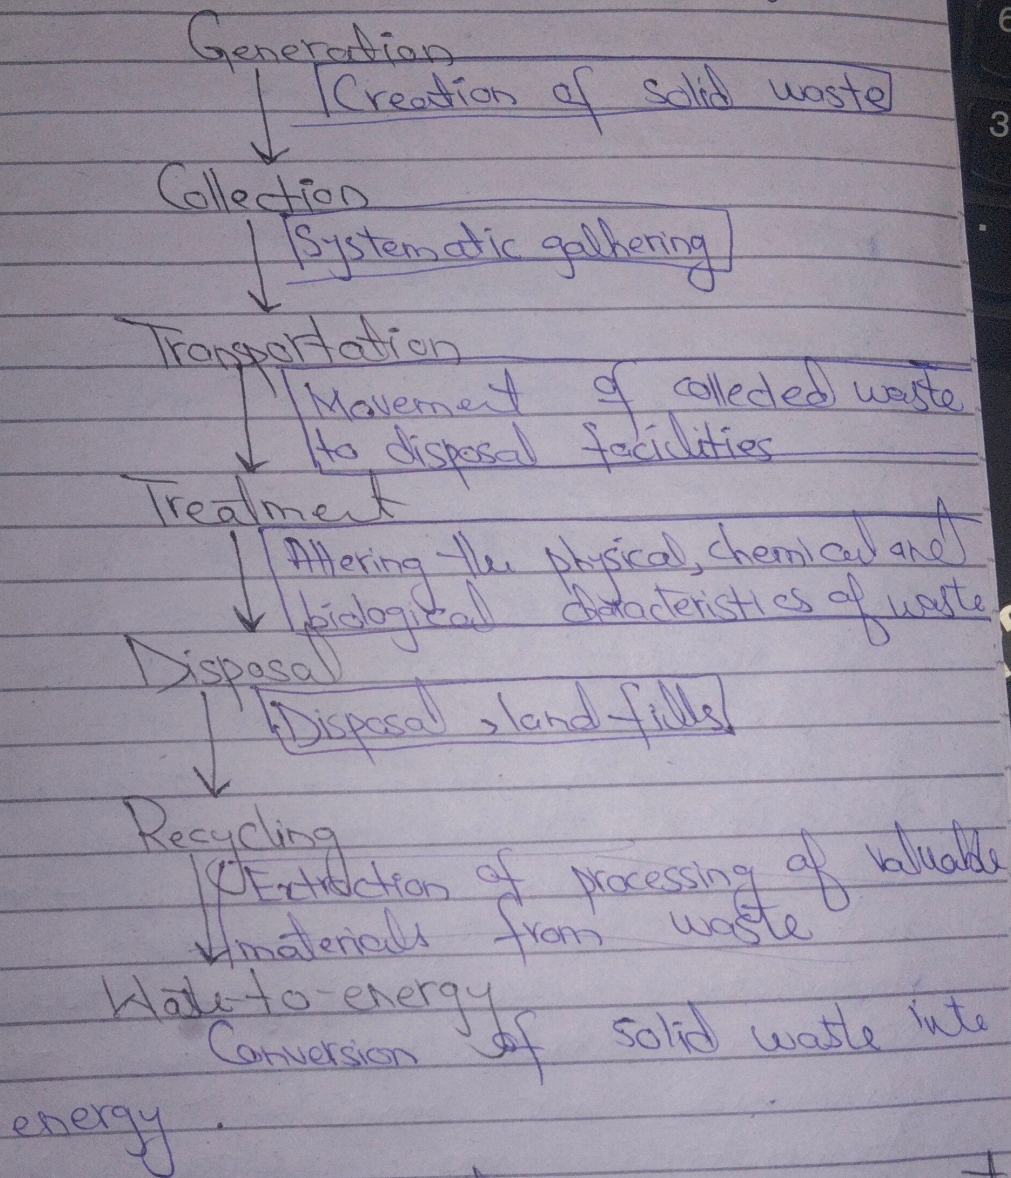 Generation
Creation of solid waste
Collection
Systematic gathering
Transportation
Movement of collected waste
to disposal facilities
Treatment
Altering the physical, chemical and
biological characteristics of waste
Disposal
Disposal, land-fills
Recycling
Extraction of processing of valuable
materials from waste
Waste-to-energy
Conversion of solid waste into
energy.
6
3